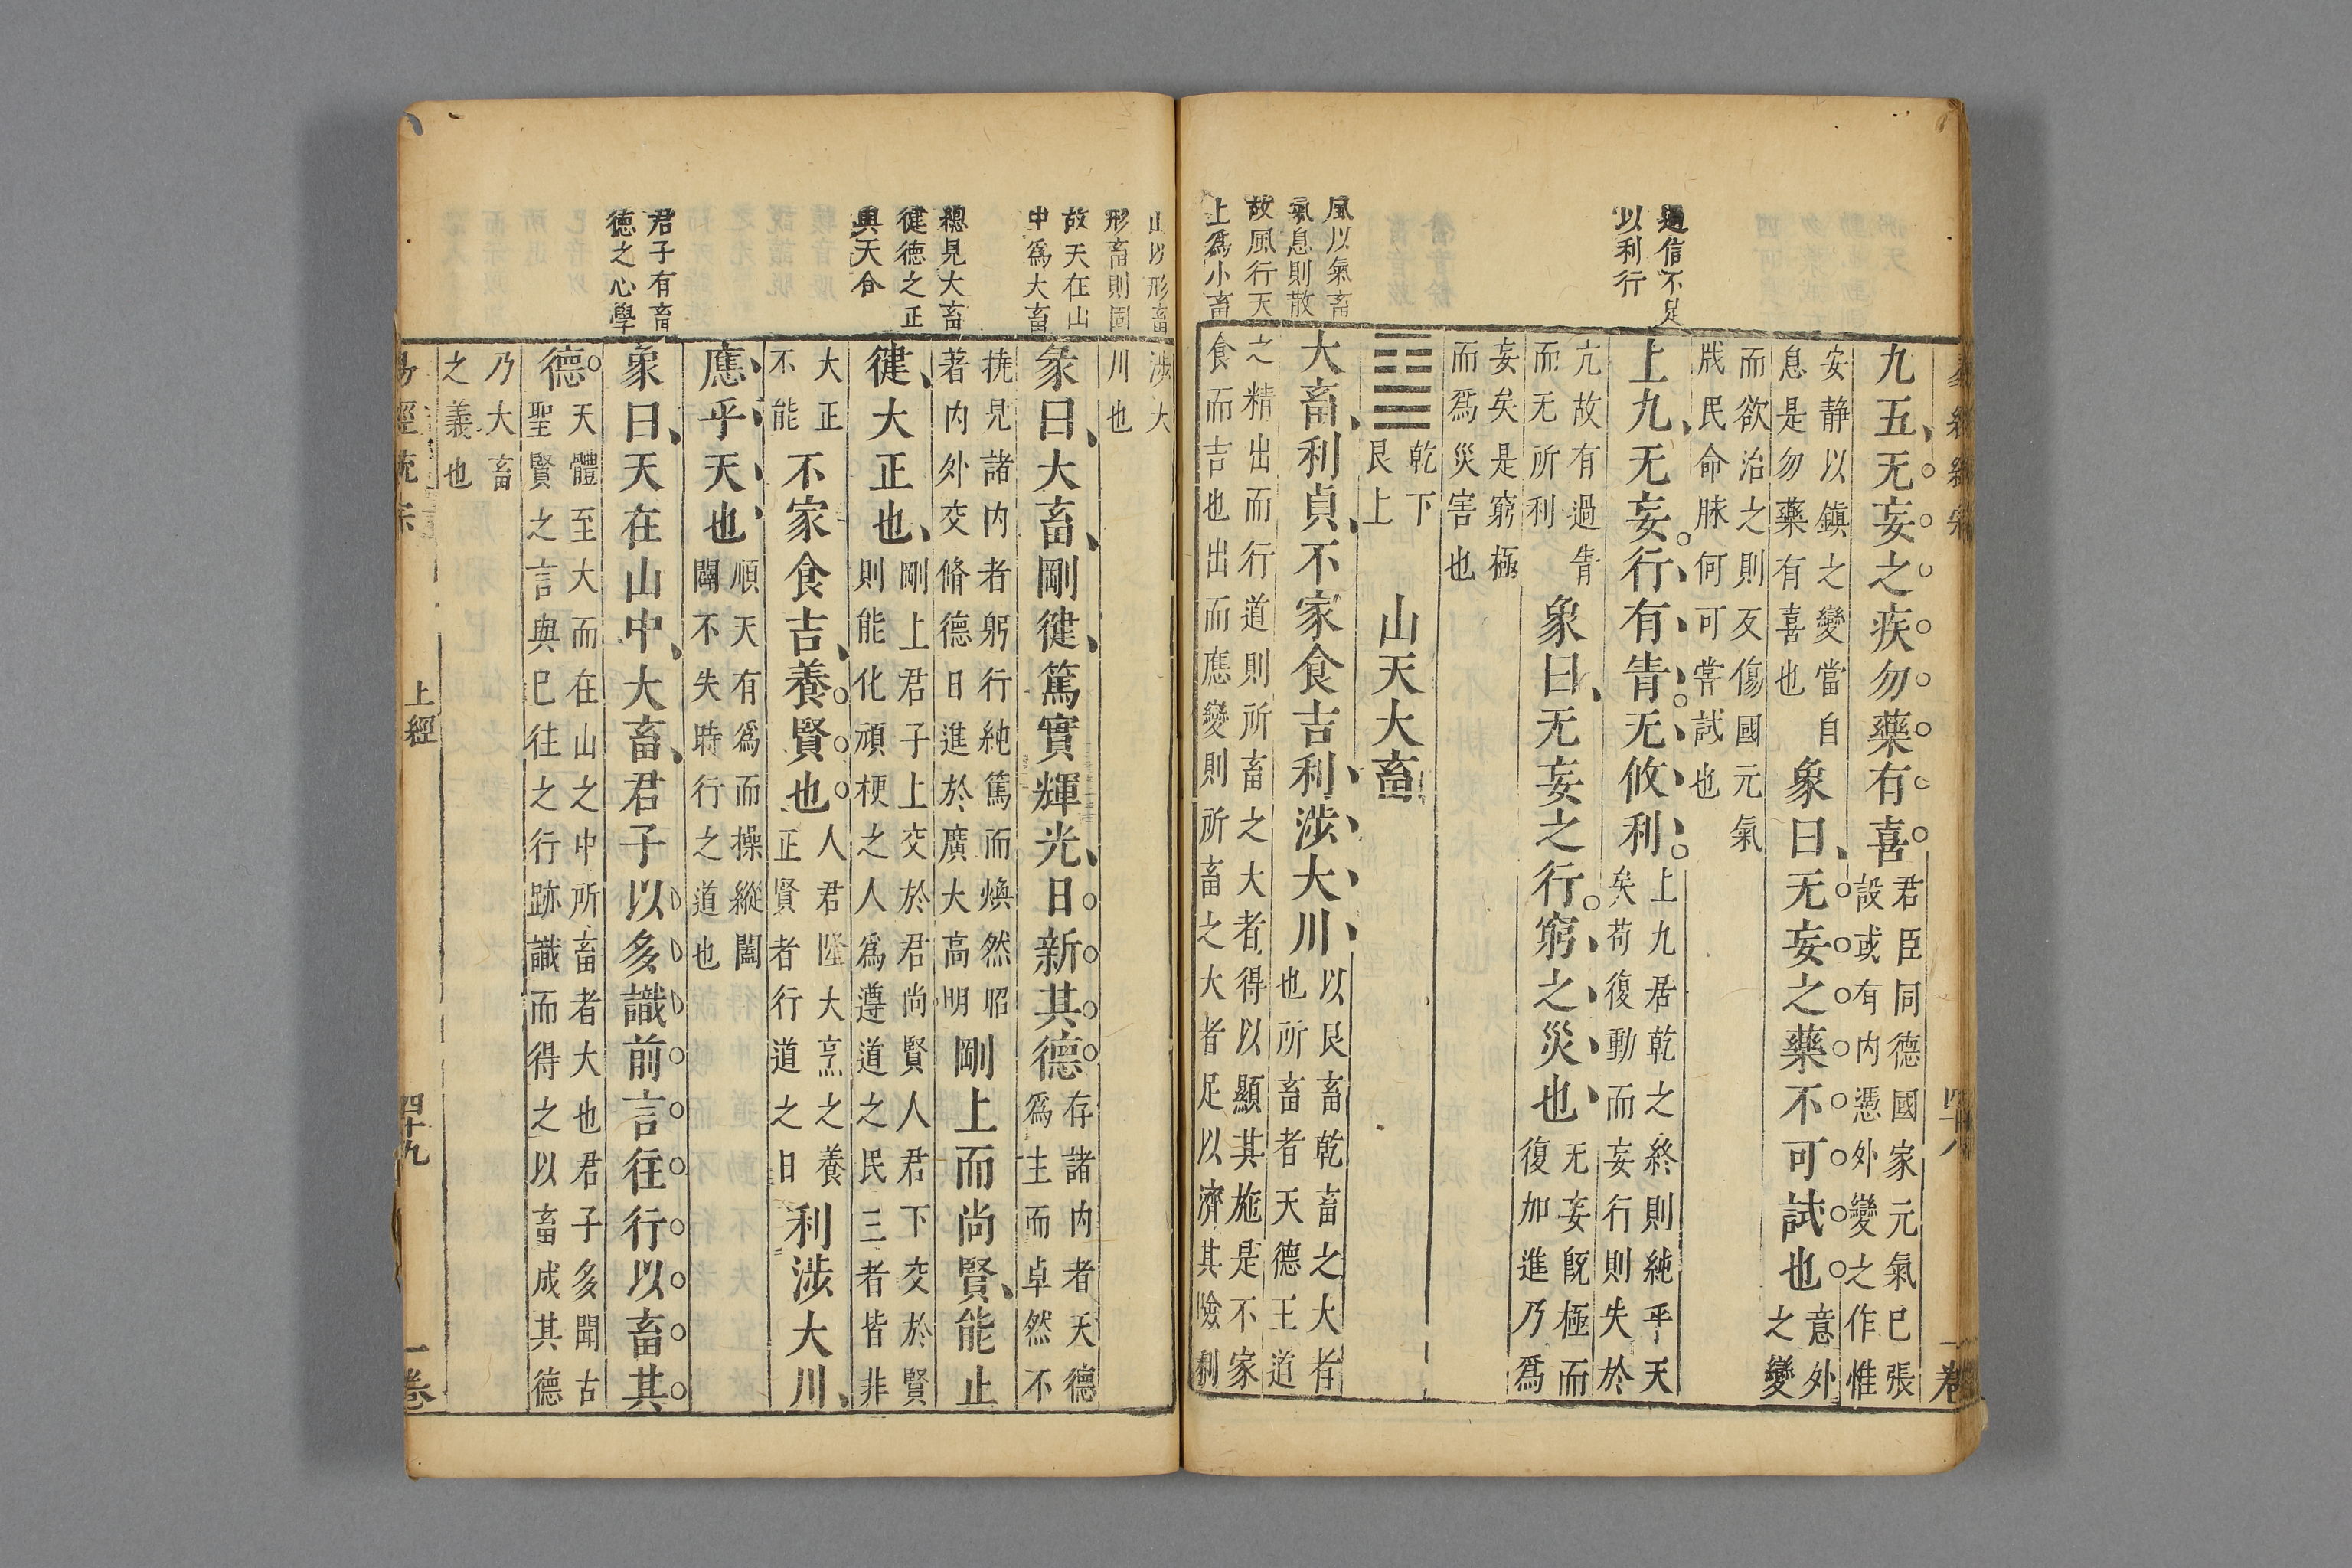 過信不足
以利行
風以氣畜
氣息則散
故風行天
上爲小畜
九五无妄之疾勿藥有喜君臣同德國家元氣已張
設或有内憑外變之作惟
安静以鎮之變當自
息是勿藥有喜也象曰无妄之藥不可試也意外
之變
而欲治之則反傷國元氣
戕民命脉何可嘗試也
上九无妄行有眚无攸利上九居乾之終則純乎天
矣苟復動而妄行則失於
亢故有過眚
而无所利象曰无妄之行窮之災也无妄既極而
復加進乃爲
妄矣是窮極
而爲災害也
乾下
艮上山天大畜
大畜利貞不家食吉利涉大川以艮畜乾畜之大者
也所畜者天德王道
之精出而行道則所畜之大者得以顯其施是不家
食而吉也出而應變則所畜之大者足以濟其險利
山以形畜
形畜則固
故天在山
中爲大畜
總見大畜
健德之正
與天合
君子有畜
德之心學
涉大
川也
彖曰大畜剛健篤實輝光日新其德存諸内者天德
爲主而卓然不
撓見諸内者躬行純篤而煥然昭
著内外交脩德日進於廣大高明剛上而尚賢能止
健大正也剛上君子上交於君尚賢人君下交於賢
則能化頑梗之人爲遵道之民三者皆非
大正
不能不家食吉養賢也人君隆大烹之養
正賢者行道之日利涉大川
應乎天也順天有爲而操縱闔
闢不失時行之道也
象曰天在山中大畜君子以多識前言往行以畜其
德天體至大而在山之中所畜者大也君子多聞古
聖賢之言與已往之行跡識而得之以畜成其德
乃大畜
之義也
易經統宗
上經
四十九
一卷